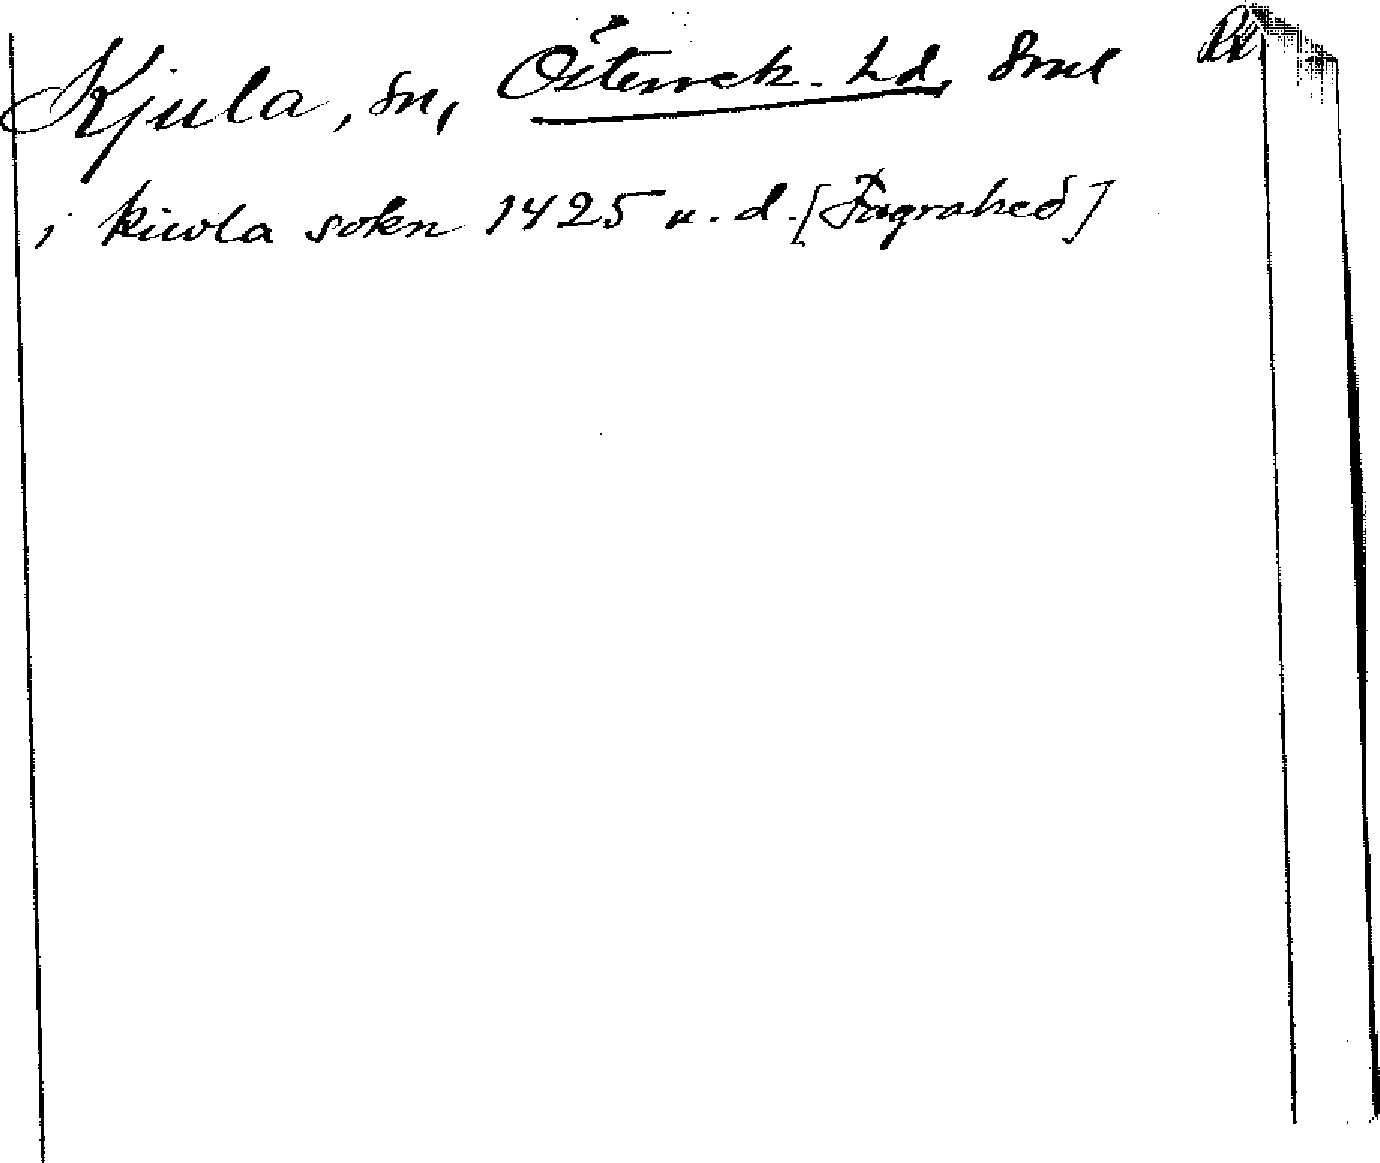 Kjula, sn, Österrek. hd, Sml Ra
i kiwla sokn 1425 u. d. [Fagrahed]